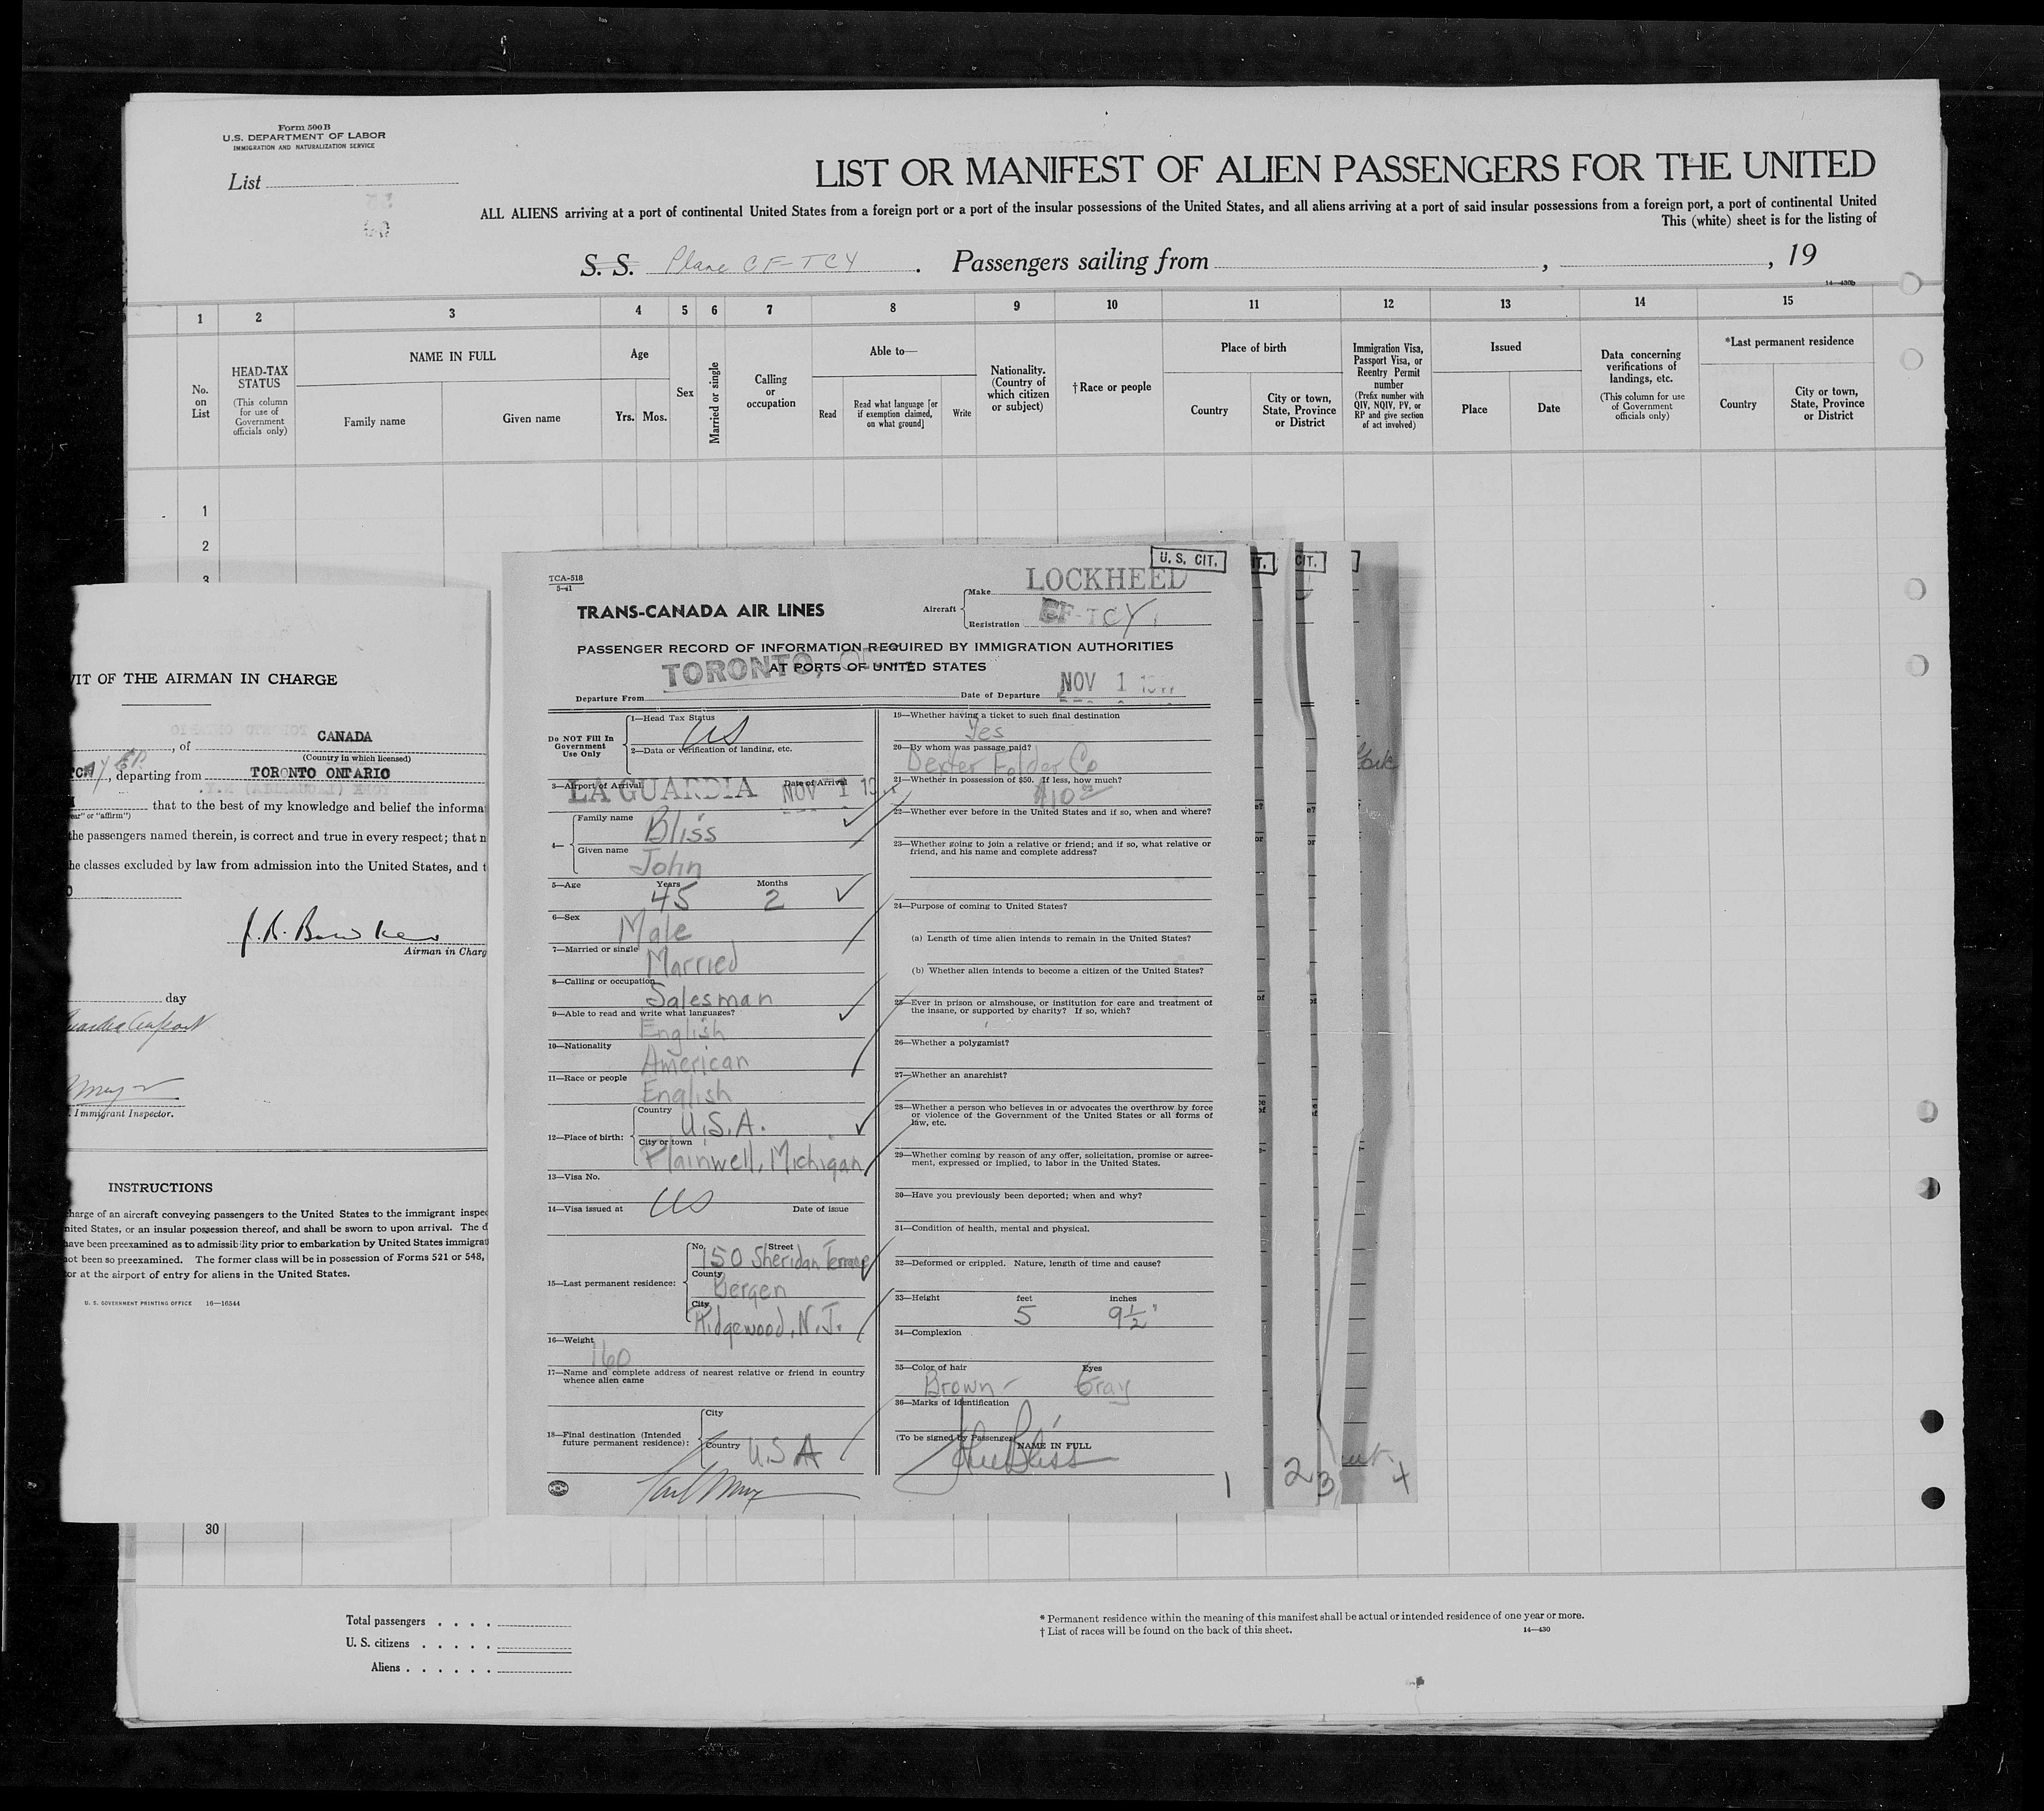 Form 500 B
U.S. DEPARTMENT OF LABOR
IMMIGRATION AND NATURALIZATION SERVICE
List
LIST OR MANIFEST OF ALIEN PASSENGERS FOR THE UNITED
ALL ALIENS arriving at a port of continental United States from a foreign port or a port of the insular possessions of the United States, and all aliens arriving at a port of said insular possessions from a foreign port, a port of continental United
This (white) sheet is for the listing of
S. S. Plane CF-TCY . Passengers sailing from , , 19
14—430b
1 2 3 4 5 6 7 8 9 10 11 12 13 14 15
No. on List
HEAD-TAX STATUS
(This column for use of Government officials only)
NAME IN FULL
Family name
Given name
Age
Yrs. Mos.
Sex
Married or single
Calling or occupation
Able to—
Read
Read what language [or if exemption claimed, on what ground]
Write
Nationality. (Country of which citizen or subject)
†Race or people
Place of birth
Country
City or town, State, Province or District
Immigration Visa, Passport Visa, or Reentry Permit number
(Prefix number with QIV, NQIV, PV, or RP and give section of act involved)
Issued
Place
Date
Data concerning verifications of landings, etc.
(This column for use of Government officials only)
*Last permanent residence
Country
City or town, State, Province or District
1
2
3
VIT OF THE AIRMAN IN CHARGE
, of CANADA
(Country in which licensed)
, departing from TORONTO ONTARIO
that to the best of my knowledge and belief the informa
ear" or "affirm")
the passengers named therein, is correct and true in every respect; that n
he classes excluded by law from admission into the United States, and t
Airman in Charg
day
Immigrant Inspector.
INSTRUCTIONS
harge of an aircraft conveying passengers to the United States to the immigrant inspec
nited States, or an insular possession thereof, and shall be sworn to upon arrival. The d
have been preexamined as to admissibility prior to embarkation by United States immigrat
not been so preexamined. The former class will be in possession of Forms 521 or 548,
or at the airport of entry for aliens in the United States.
U. S. GOVERNMENT PRINTING OFFICE 16—16544
TCA-518
5-41
U. S. CIT.
IT.
CIT.
TRANS-CANADA AIR LINES
Aircraft
Make LOCKHEED
Registration CF-TCY
PASSENGER RECORD OF INFORMATION REQUIRED BY IMMIGRATION AUTHORITIES
AT PORTS OF UNITED STATES
Departure From TORONTO,
Date of Departure NOV 1
Do NOT Fill In Government Use Only
1—Head Tax Status US
2—Data or verification of landing, etc.
3—Airport of Arrival LA GUARDIA Date of Arrival NOV 1
4—
Family name Bliss
Given name John
5—Age Years 45 Months 2
6—Sex Male
7—Married or single Married
8—Calling or occupation Salesman
9—Able to read and write what languages? English
10—Nationality American
11—Race or people English
12—Place of birth:
Country U.S.A.
City or town Plainwell, Michigan
13—Visa No.
14—Visa issued at US Date of issue
15—Last permanent residence:
No. Street 150 Sheridan Terrace
County Bergen
City Ridgewood, N.J.
16—Weight 160
17—Name and complete address of nearest relative or friend in country
whence alien came
18—Final destination (Intended
future permanent residence):
City
Country U.S.A
19—Whether having a ticket to such final destination
Yes
20—By whom was passage paid?
Dexter Folder Co
21—Whether in possession of $50. If less, how much?
22—Whether ever before in the United States and if so, when and where?
23—Whether going to join a relative or friend; and if so, what relative or
friend, and his name and complete address?
24—Purpose of coming to United States?
(a) Length of time alien intends to remain in the United States?
(b) Whether alien intends to become a citizen of the United States?
25—Ever in prison or almshouse, or institution for care and treatment of
the insane, or supported by charity? If so, which?
26—Whether a polygamist?
27—Whether an anarchist?
28—Whether a person who believes in or advocates the overthrow by force
or violence of the Government of the United States or all forms of
law, etc.
29—Whether coming by reason of any offer, solicitation, promise or agree-
ment, expressed or implied, to labor in the United States.
30—Have you previously been deported; when and why?
31—Condition of health, mental and physical.
32—Deformed or crippled. Nature, length of time and cause?
33—Height feet 5 inches 9½"
34—Complexion
35—Color of hair Brown Eyes Gray
36—Marks of identification
(To be signed by Passenger)
NAME IN FULL
John Bliss
1
2
3
4
30
Total passengers . . . .
U. S. citizens . . . . .
Aliens . . . . . .
* Permanent residence within the meaning of this manifest shall be actual or intended residence of one year or more.
† List of races will be found on the back of this sheet.
14—430